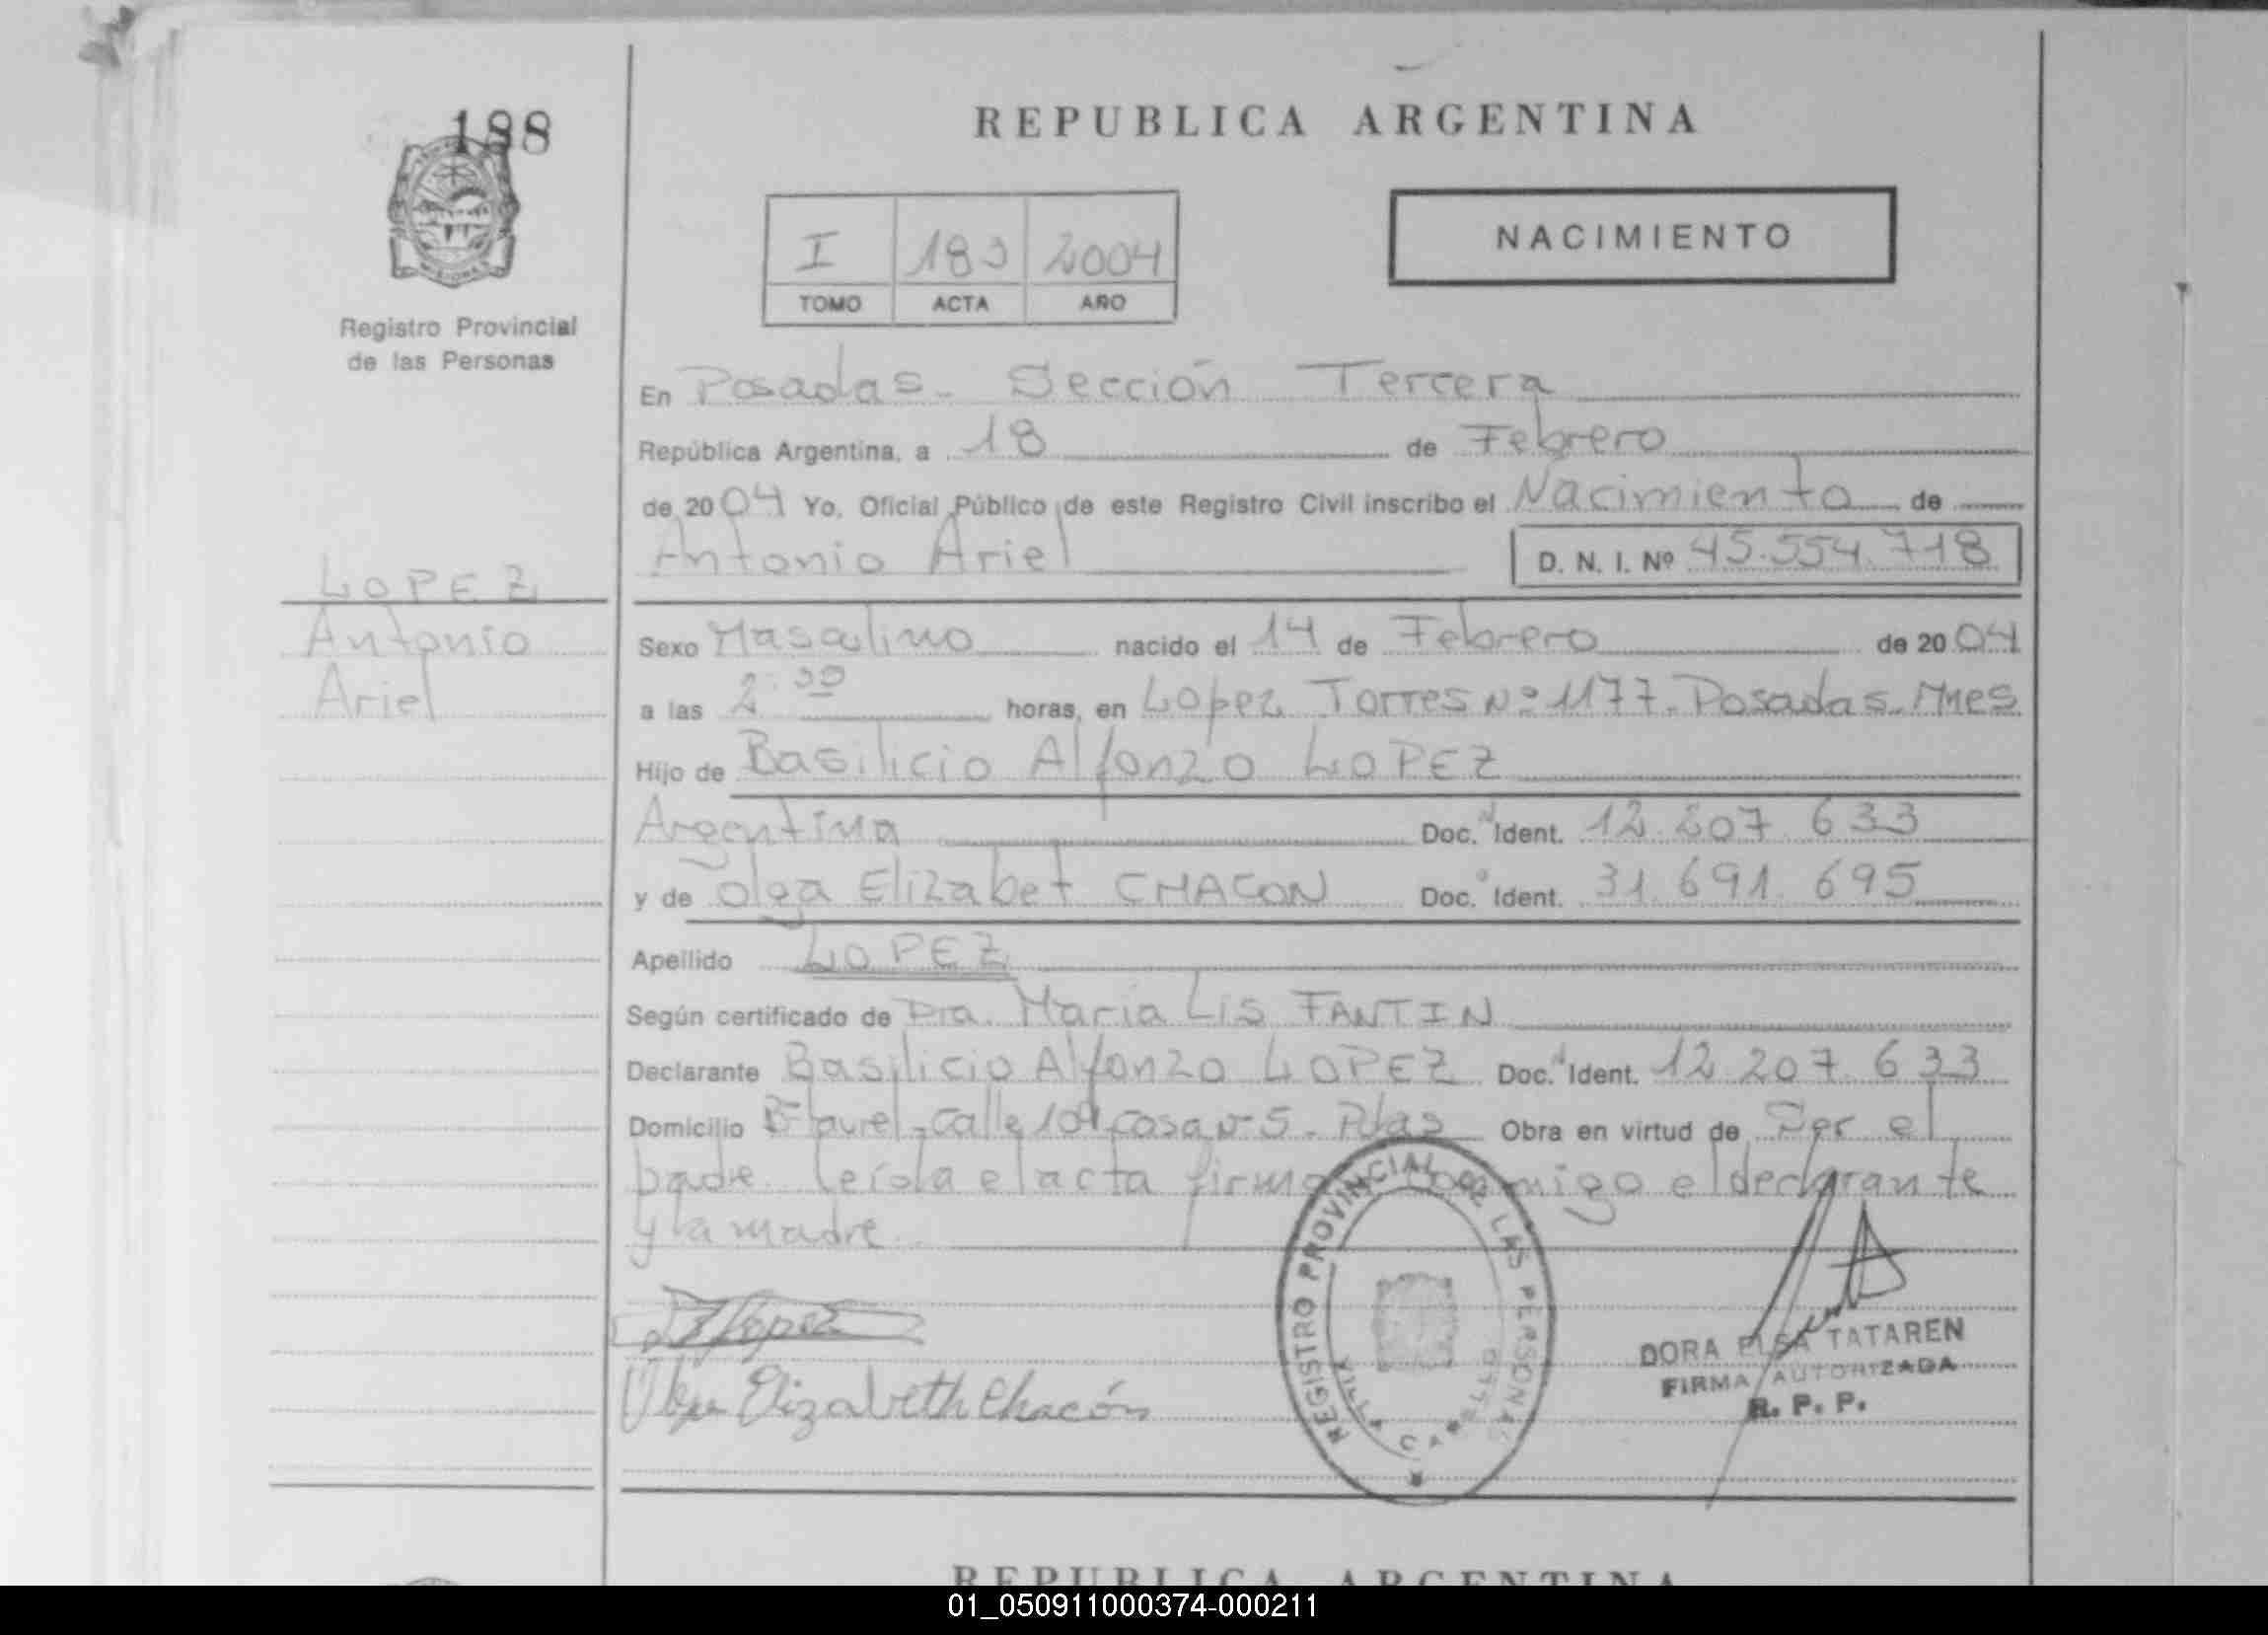 188
MISIONES
Registro Provincial
de las Personas
REPUBLICA ARGENTINA
I 183 2004
TOMO ACTA AÑO
NACIMIENTO
En Posadas - Sección Tercera
República Argentina, a 18 de Febrero
de 2004 Yo, Oficial Público de este Registro Civil inscribo el Nacimiento de
Antonio Ariel D. N. I. Nº 45.554.718
LOPEZ
Antonio
Ariel
Sexo Masculino nacido el 14 de Febrero de 2004
a las 2: horas, en Lopez Torres Nº 1177. Posadas. Mnes
Hijo de Basilicio Alfonzo LOPEZ
Argentina Doc. Ident. 12.207.633
y de Olga Elizabet CHACON Doc. Ident. 31.691.695
Apellido LOPEZ
Según certificado de Dra. Maria Lis FANTIN
Declarante Basilicio Alfonzo LOPEZ Doc. Ident. 12.207.633
Domicilio calle 109 casa nº 5. Pdas Obra en virtud de Ser el
padre. leída el acta firma conmigo el declarante
y la madre.
Lopez
Olga Elizabeth Chacón
REGISTRO PROVINCIAL DE LAS PERSONAS
VILLA CABELLO
DORA ELSA TATAREN
FIRMA AUTORIZADA
R. P. P.
REPUBLICA ARGENTINA
01_050911000374-000211